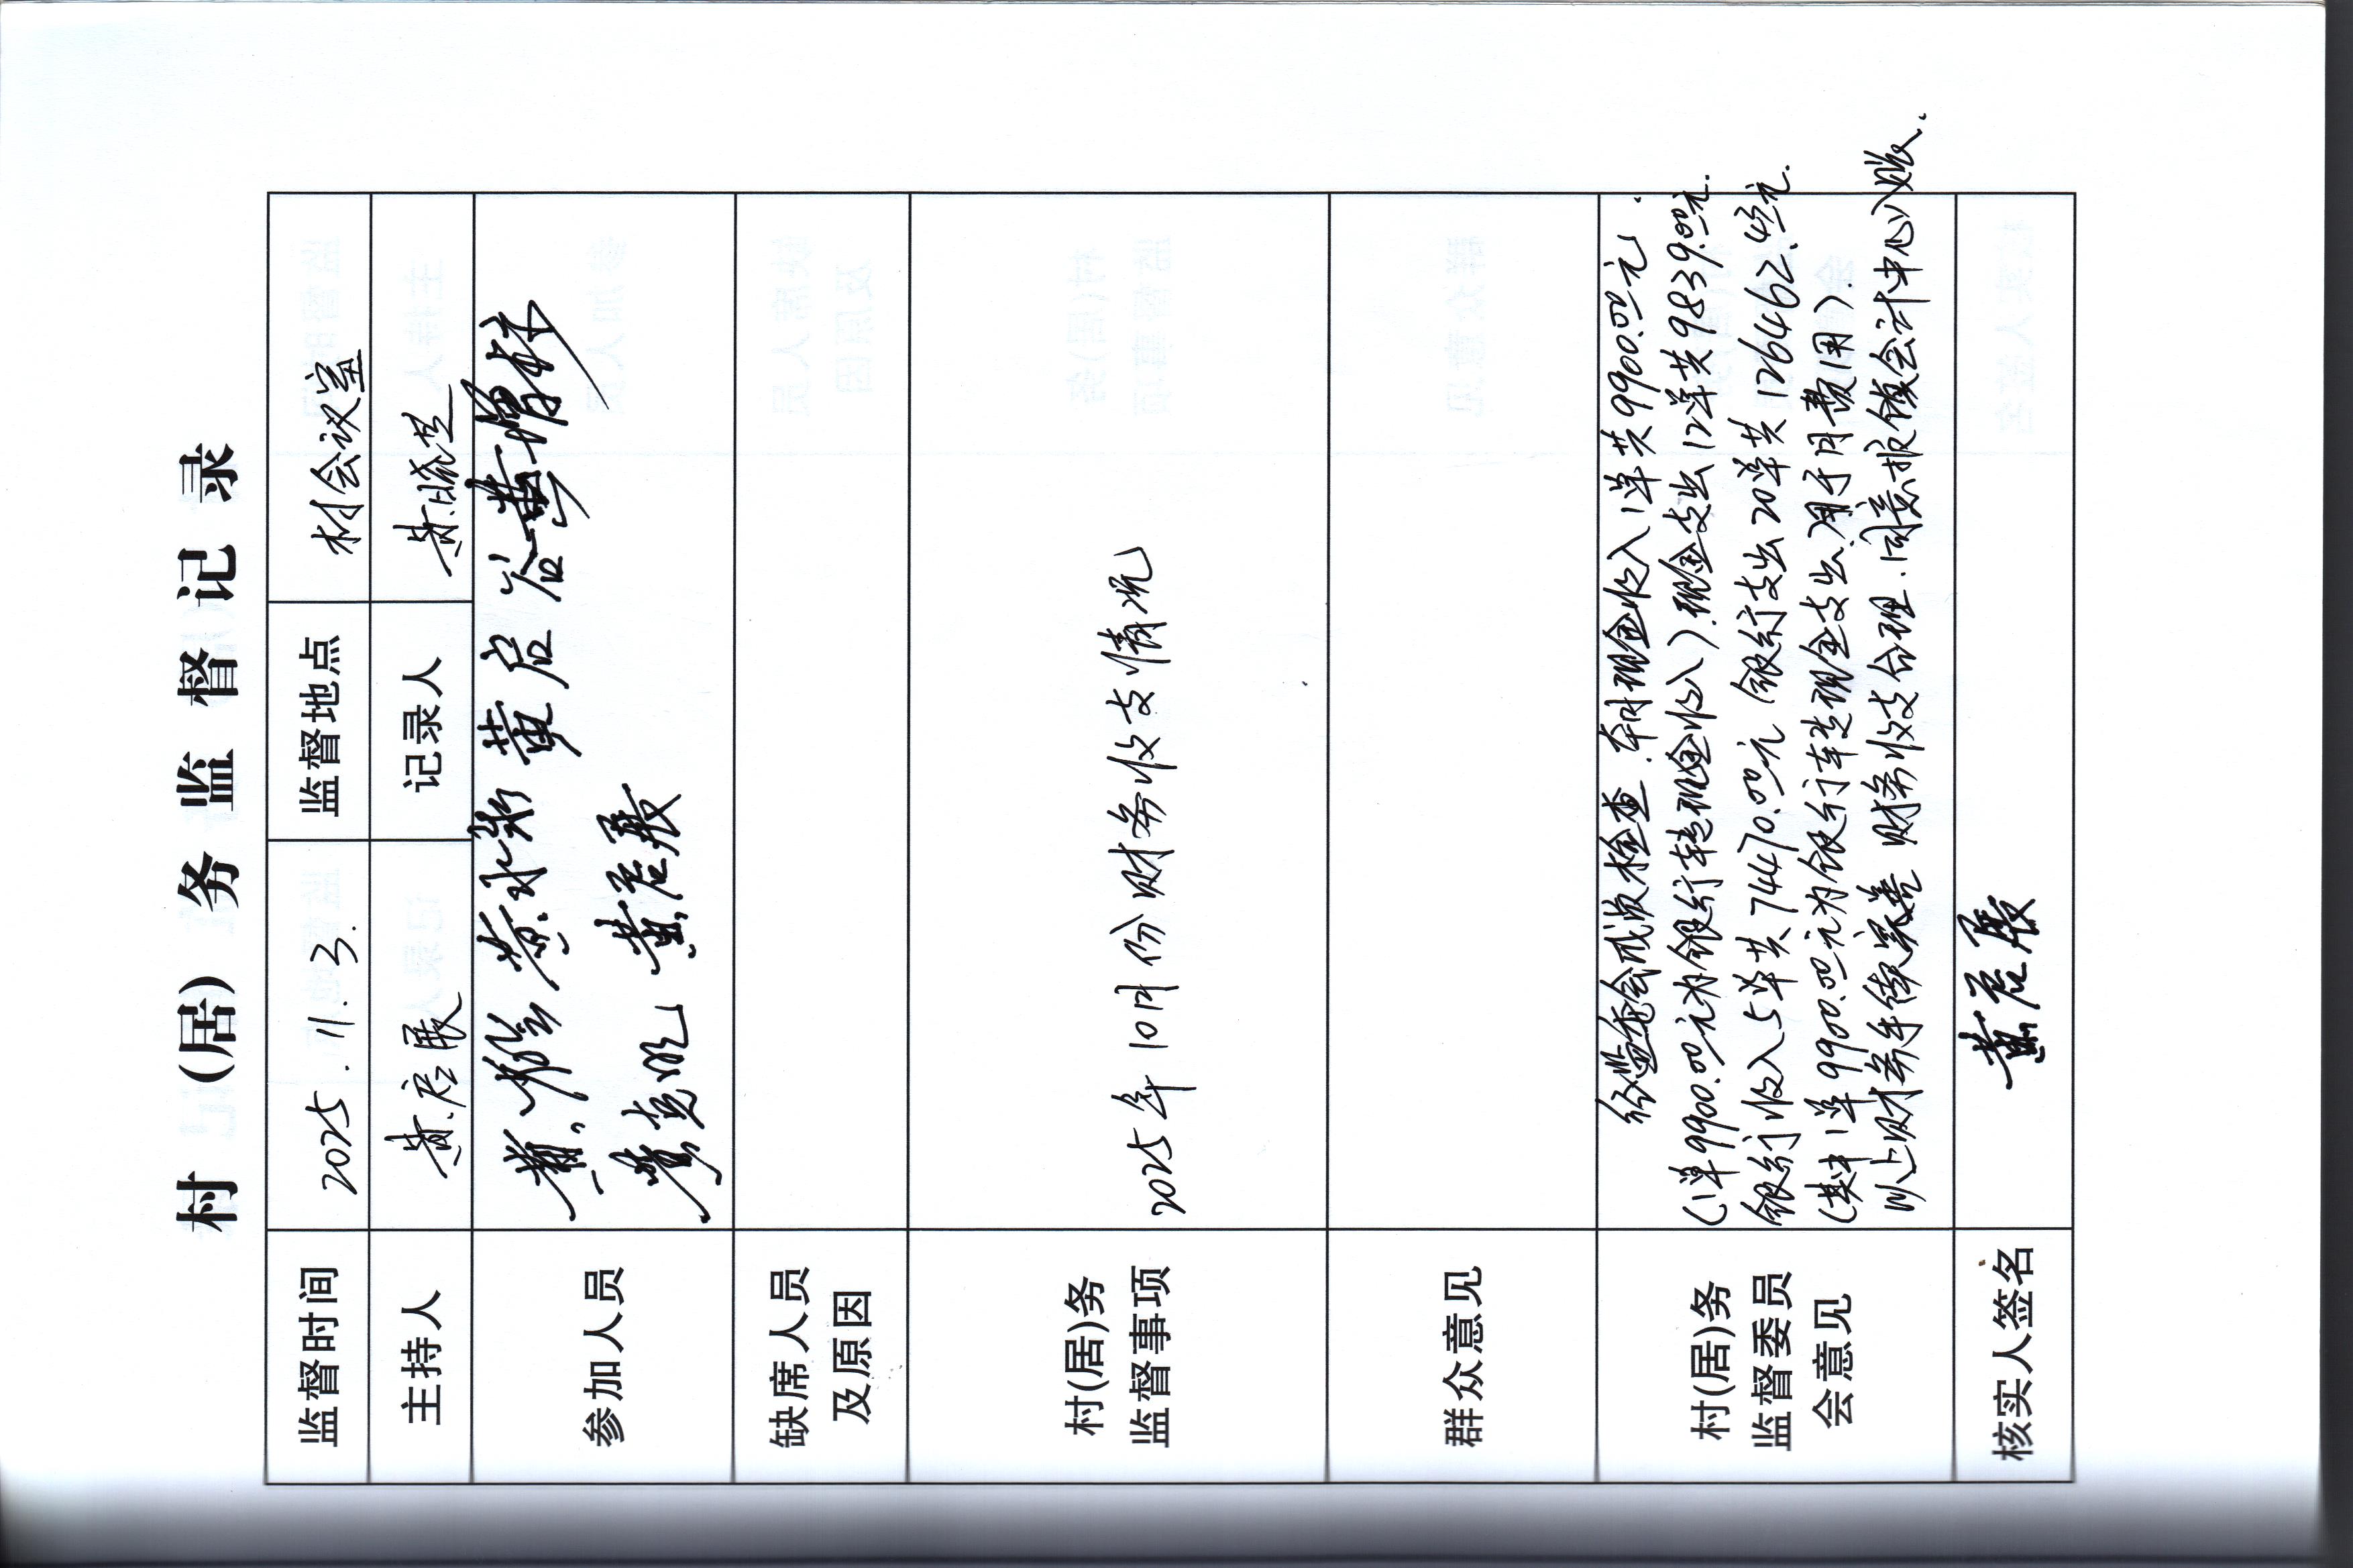 村（居）务监督记录
监督时间 2025.11.3. 监督地点 村会议室
主持人 黄启展 记录人 黄晓芝
参加人员 黄 黄永彬 黄启裕 黄增标
黄 黄启展
缺席人员
及原因
村(居)务
监督事项
2025年10月份财务收支情况
群众意见
村(居)务
监督委员
会意见
经监委会成员检查.本月现金收入1单共9900.00元.
(1单9900.00元为银行转现金收入).现金支出12单共9839.00元.
银行收入5单共74470.00元 银行支出20单共126462.45元.
(其中1单9900.00元为银行转现金支出.用于日常费用).
以上财务手续完善 财务收支合理.同意报镇会计中心入账.
核实人签名 黄启展